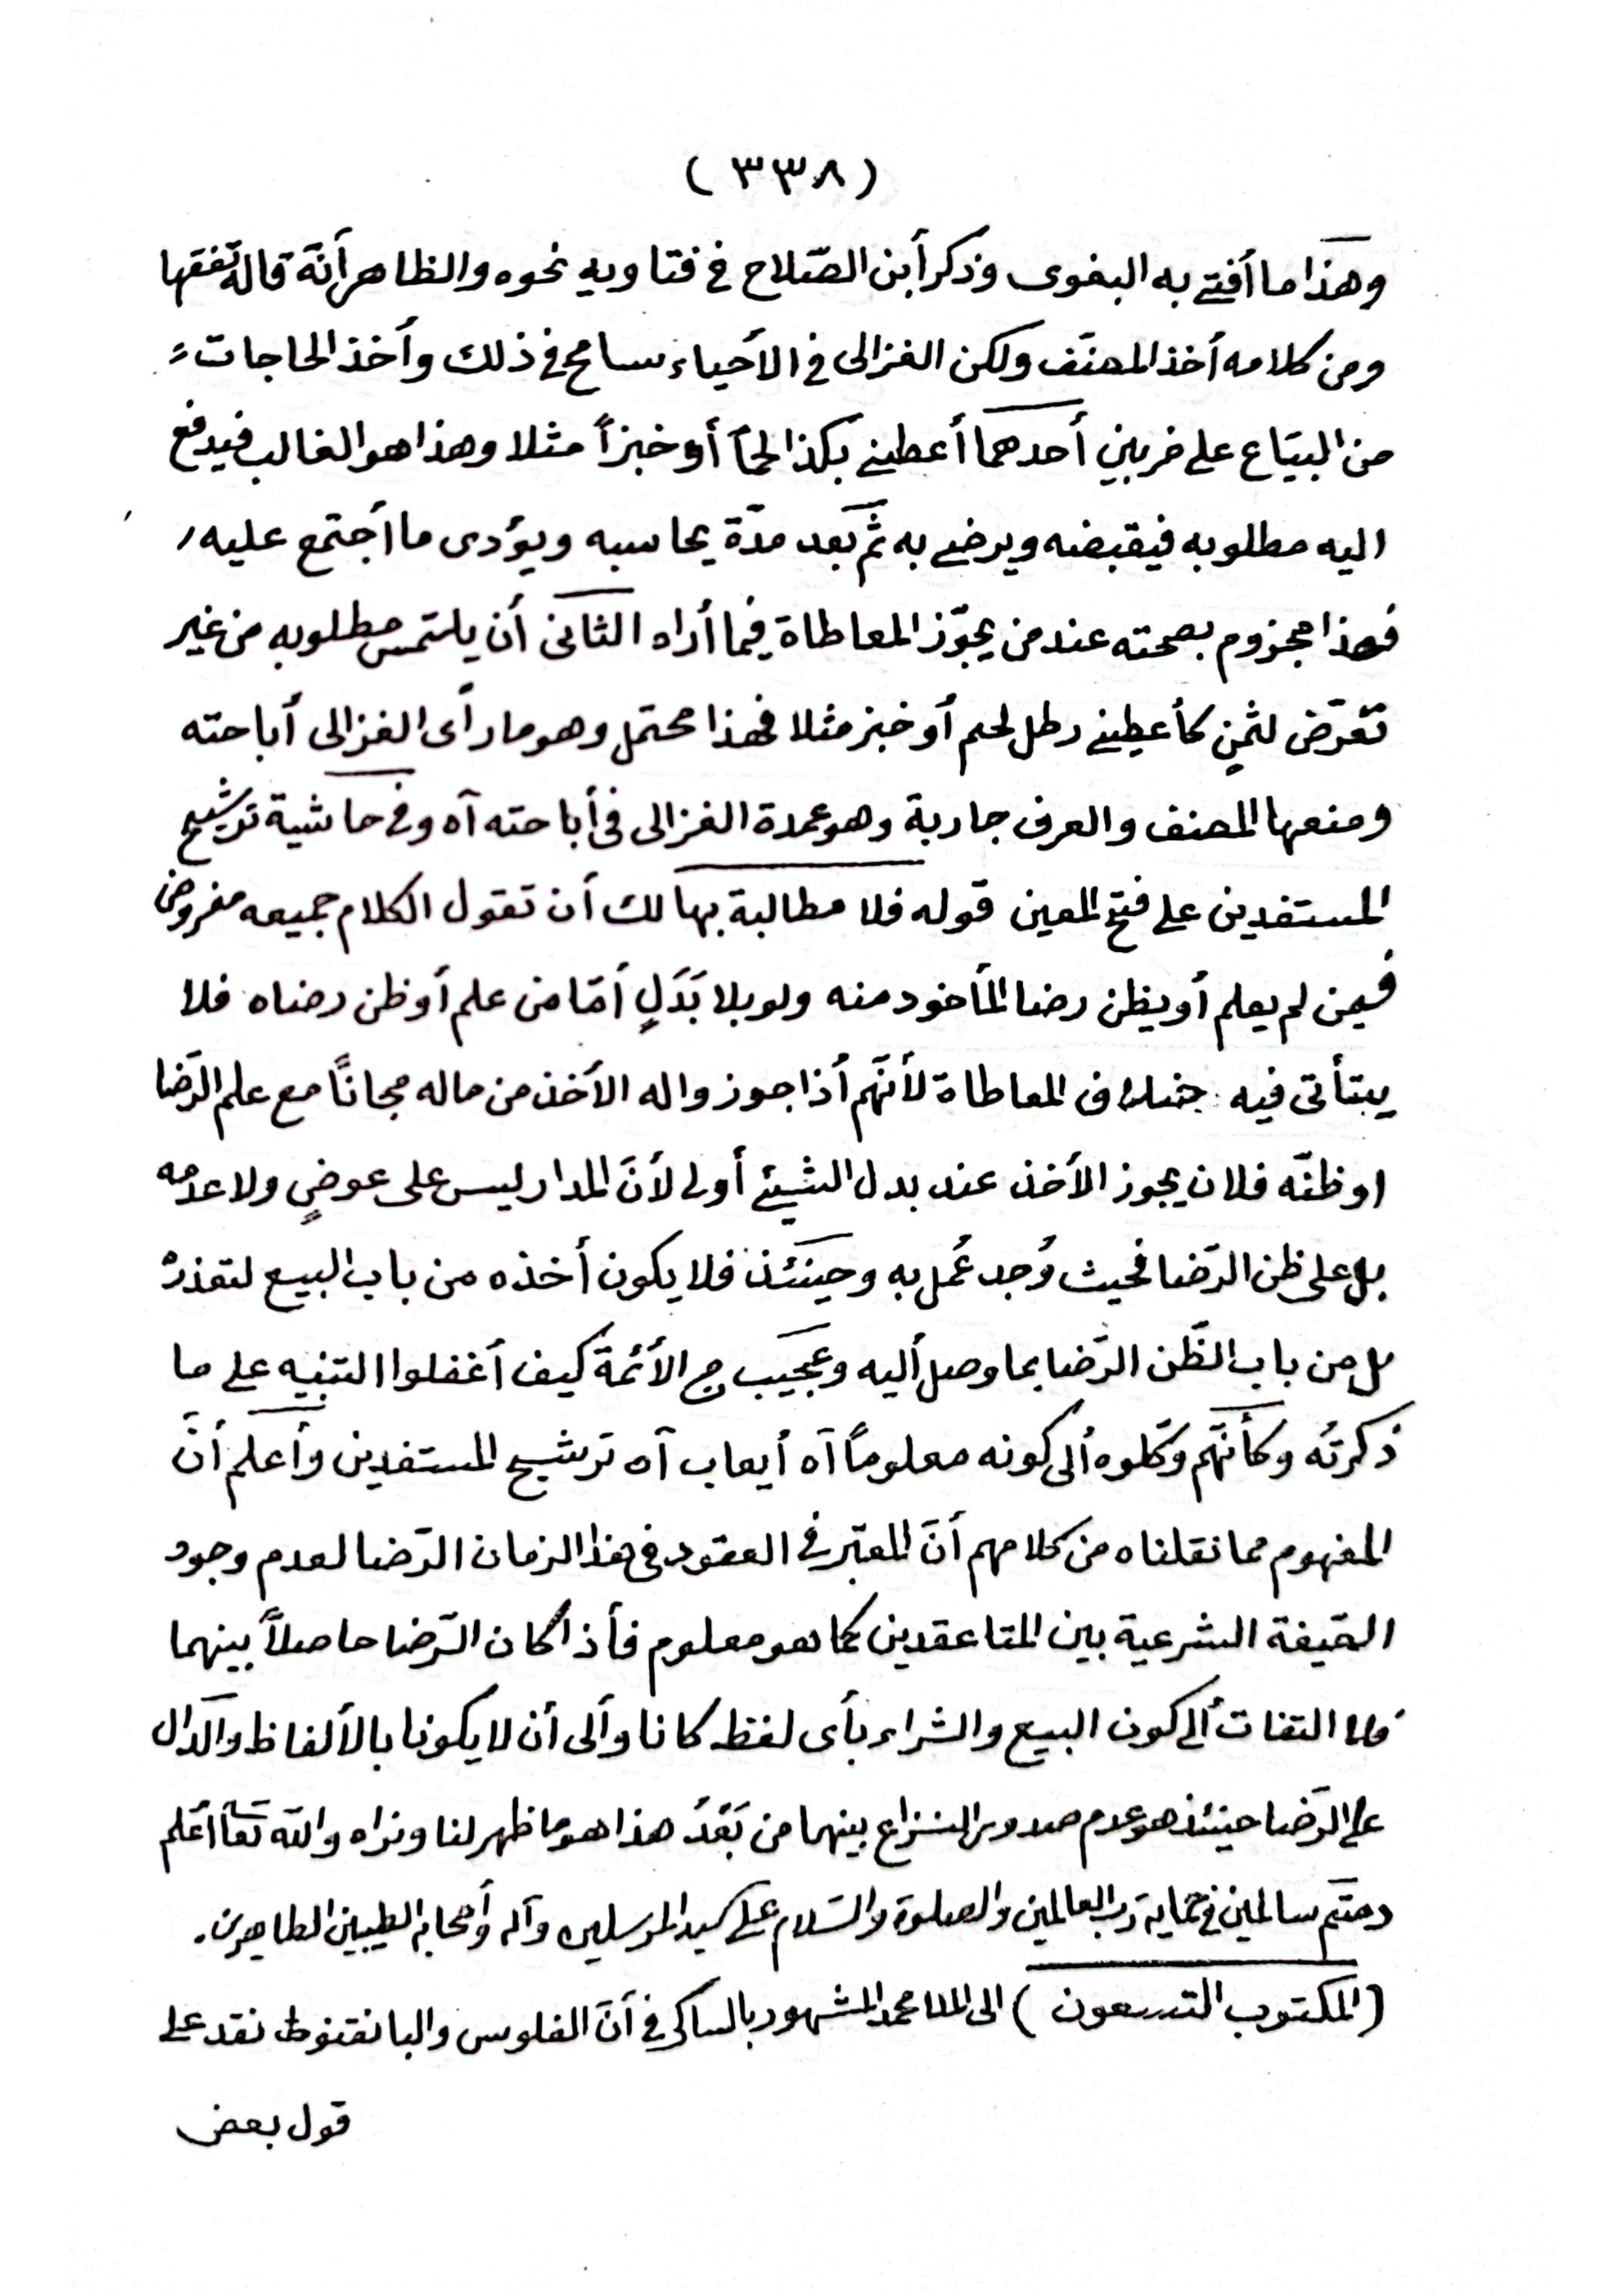 (٣٣٨)
وهذا ما أفتى به البغوى وذكر أبن الصّلاح فى فتاويه نحوه والظاهر أنّه قاله تفقها
ومن كلامه أخذ المصنّف ولكن الغزالى فى الأحياء سامح فى ذلك وأخذ الحاجات
من البيّاع على ضربين أحدهما أعطنى بكذا لحماً أو خبزاً مثلا وهذا هو الغالب فيدفع
اليه مطلوبه فيقبضه ويرضى به ثمّ بعد مدّة يحاسبه ويؤدى ما أجتمع عليه
فهذا مجزوم بصحته عند من يجوّز المعاطاة فيما أراه الثانى أن يلتمس مطلوبه من غير
تعرّض لثمنٍ كأعطينى رطل لحم أو خبز مثلا فهذا محتمل وهو ما رأى الغزالى أباحته
ومنعها المصنف والعرف جارية وهو عمدة الغزالى فى أباحته آه وفى حاشية ترشيح
المستفدين على فتح المعين قوله فلا مطالبة بها لك أن تقول الكلام جميعه مفروض
فيمن لم يعلم أو يظن رضا المأخود منه ولو بلا بَدَلٍ أمّا من علم أو ظن رضاه فلا
يتأتى فيه خلاف المعاطاة لأنّهم أذا جوزوا له الأخذ من ماله مجاناً مع علم الرّضا
او ظنّه فلان يجوز الأخذ عند بدل الشيئ أولى لأنّ المدار ليس على عوضٍ ولا عدمه
بل على ظن الرّضا فحيث وُجد عُمل به وحينئذ فلا يكون أخذه من باب البيع لتعذره
بل من باب الظّن الرّضا بما وصل أليه وعجيب من الأئمة كيف أغفلوا التنبيه على ما
ذكرتُه وكأنّهم وكّلوه ألى كونه معلوماً آه أيعاب آه ترشيح المستفدين وأعلم أنّ
المفهوم مما نقلناه من كلامهم أنّ المعتبر فى العقود فى هذا الزمان الرّضا لعدم وجود
الصّيغة الشرعية بين المتاعقدين كما هو معلوم فأذا كان الرّضا حاصلاً بينهما
فلا التفات ألى كون البيع والشراء بأى لفظ كانا وألى أن لا يكونا بالألفاظ والدّال
على الرّضا حينئذ هو عدم صدور النزاع بينهما من بَعْدُ هذا هو ما ظهر لنا ونراه والله تعاٰ أعلم
دمتم سالمين فى حماية رب العالمين والصلوة والسّلام على سيد المرسلين وآله وأصحابه الطيبين الطاهرين.
(المكتوب التسعون) الى الملا محمد المشهور بالساكى فى أنّ الفلوس والبانقنوط نقد على
قول بعض